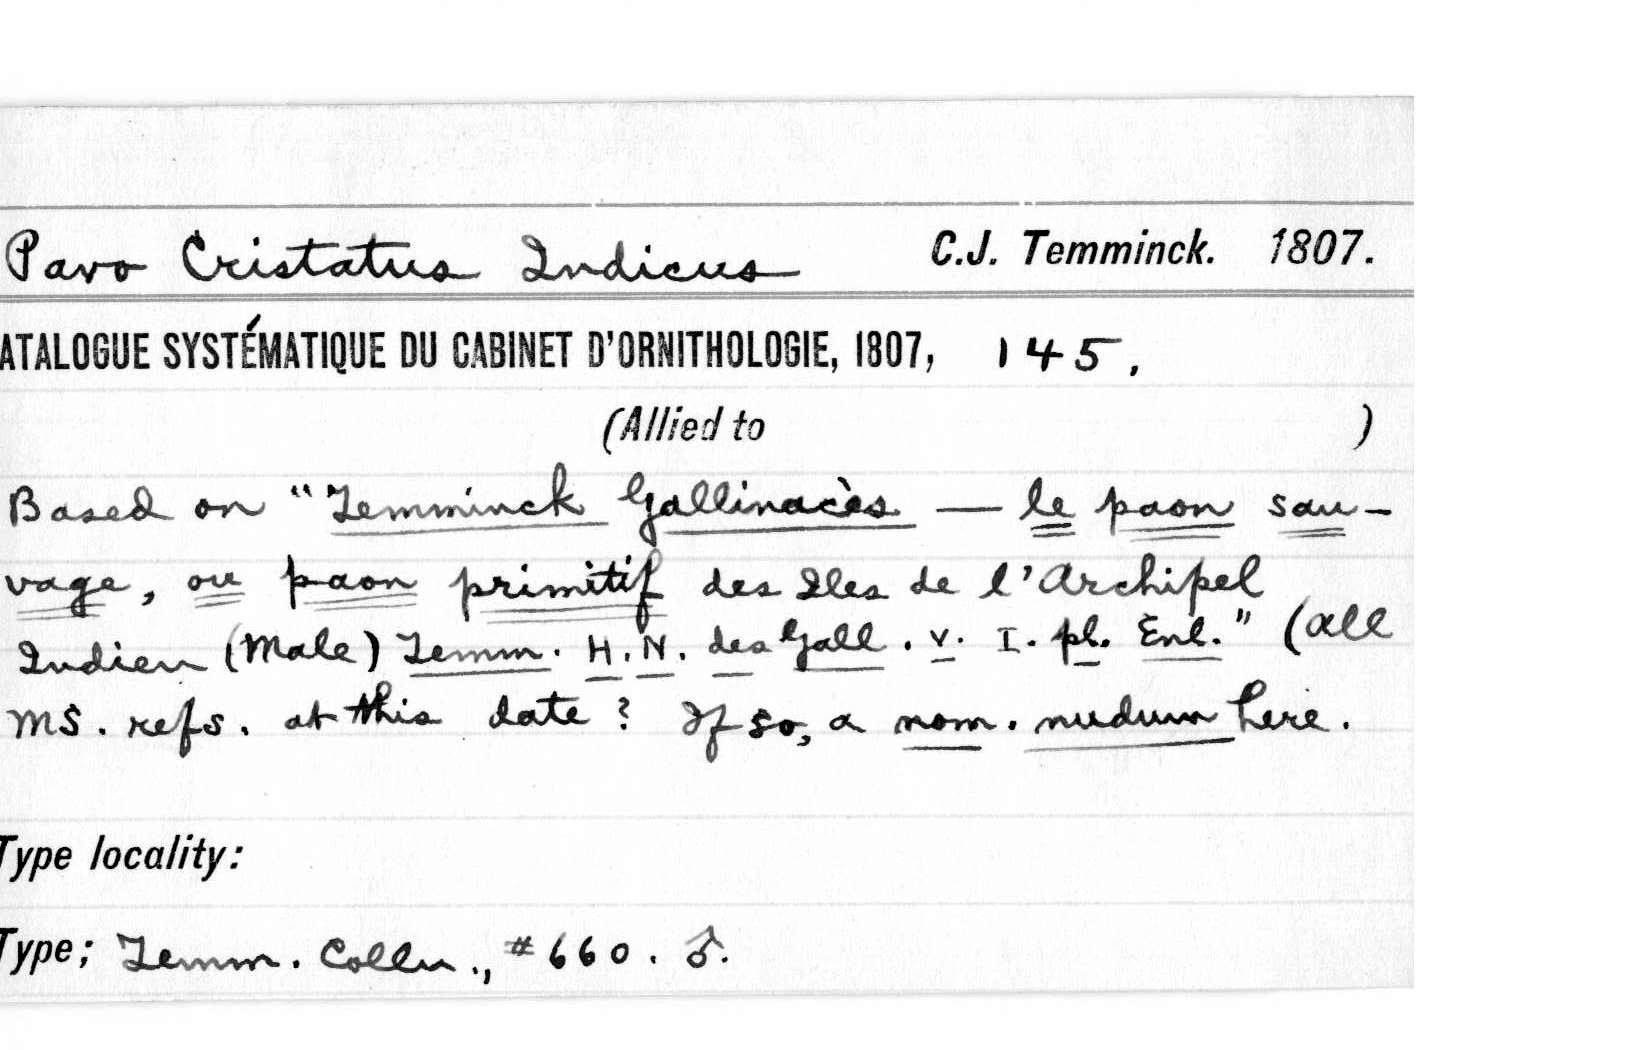 Pavo Cristatus Indicus C.J. Temminck. 1807.
ATALOGUE SYSTÉMATIQUE DU CABINET D'ORNITHOLOGIE, 1807, 145.
(Allied to )
Based on "Temminck Gallinacès — le paon sau-
vage, ou paon primitif des Iles de l'Archipel
Indien (Male) Temm. H.N. des Gall. v. I. pl. Enl." (all
MS. refs. at this date? If so, a nom. nudum here.
Type locality:
Type; Temm. Colln., #660. ♂.